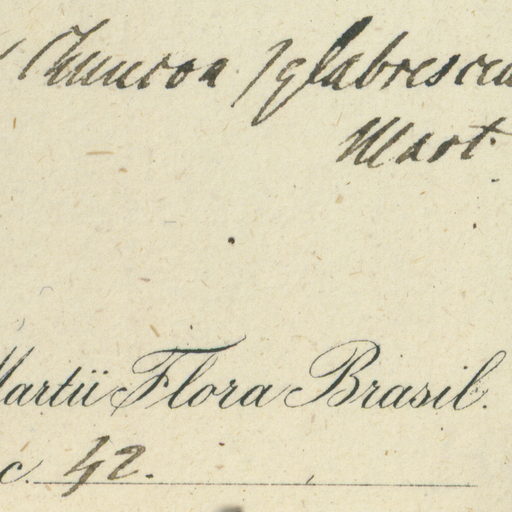 glabrescen
Mart.
Martii Flora Brasil.
c. 42.